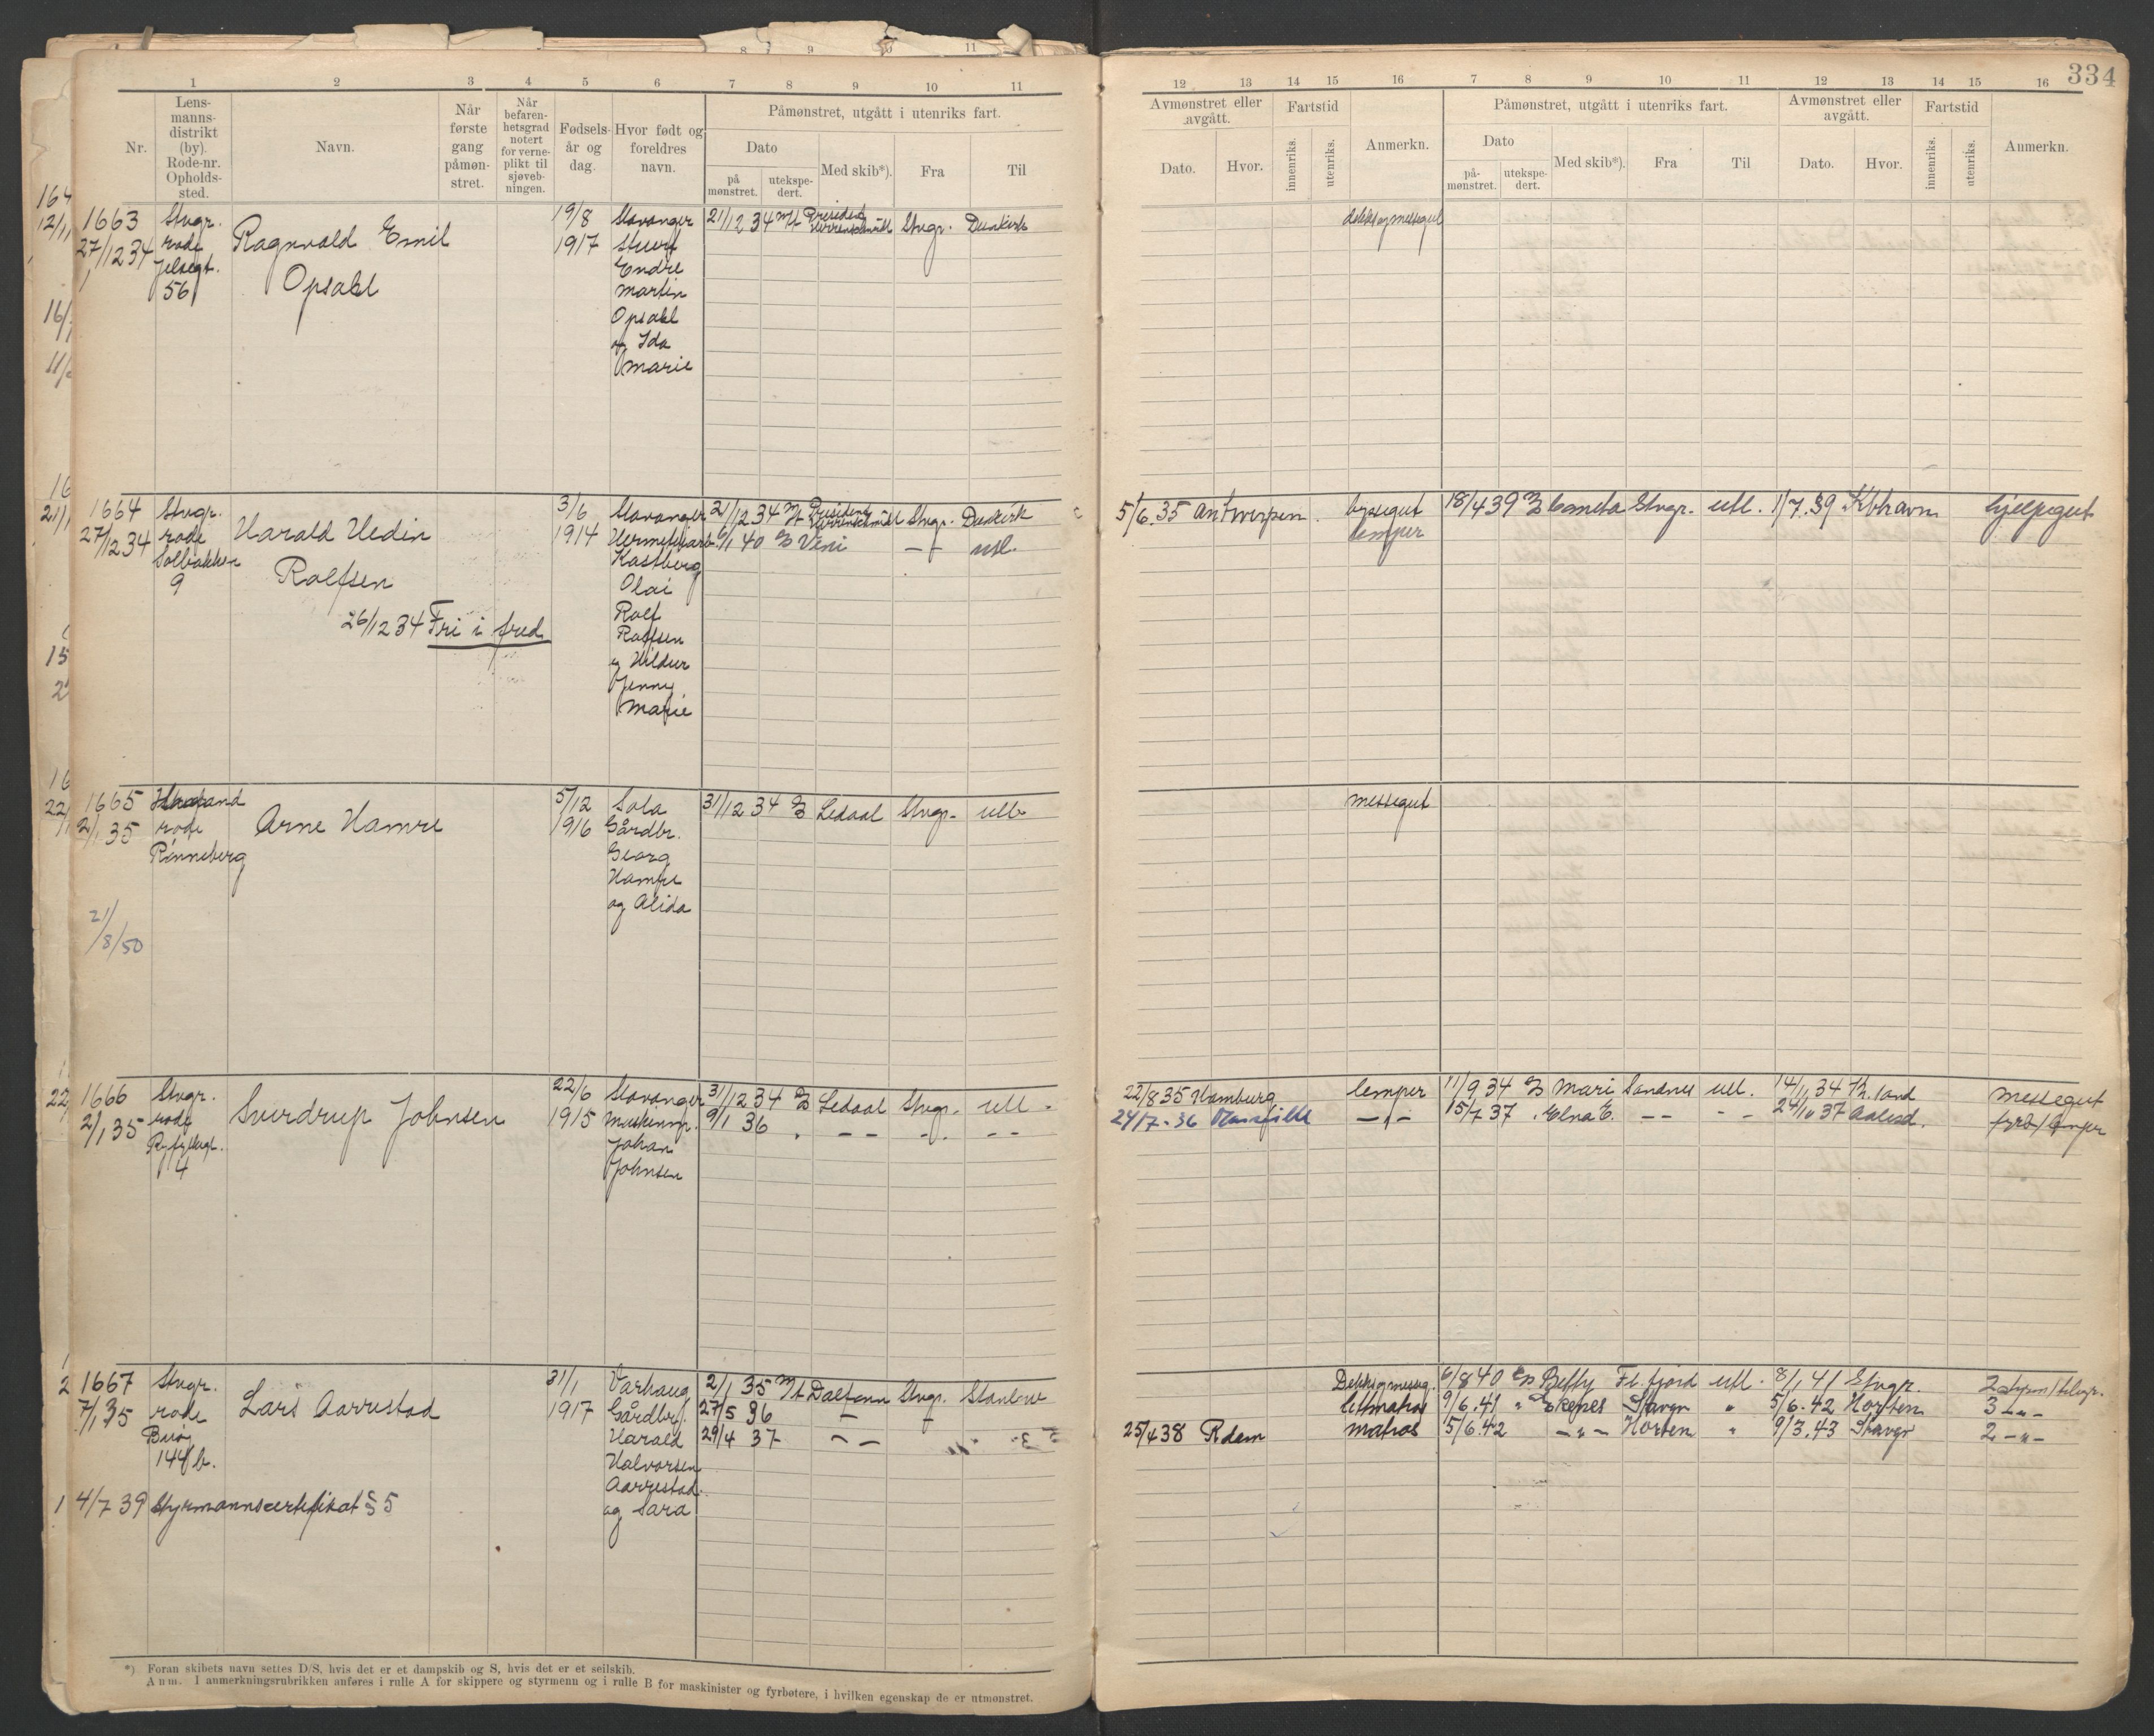 334
1 2 3 4 5 6 7 8 9 10 11
12 13 14 15 16 7 8 9 10 11 12 13 14 15 16
Nr.
Lens-
manns-
distrikt
(by).
Rode-nr.
Opholds-
sted.
Navn.
Når
første
gang
påmøn-
stret.
Når
befaren-
hetsgrad
notert
for verne-
plikt til
sjøveb-
ningen.
Fødsels-
år og
dag.
Hvor født og
foreldres
navn.
Påmønstret, utgått i utenriks fart.
Dato
på
mønstret.
utekspe-
dert.
Med skib*).
Fra
Til
Avmønstret eller
avgått.
Dato.
Hvor.
Fartstid
innenriks.
utenriks.
Anmerkn.
Påmønstret, utgått i utenriks fart.
Dato
på-
mønstret.
utekspe-
dert.
Med skib*).
Fra
Til
Avmønstret eller
avgått.
Dato.
Hvor.
Fartstid
innenriks.
utenriks.
Anmerkn.
1663 Stvgr. Ragnvald Emil 19/8 Stavanger 21/12 34 M/t President Stvgr. Dunkirk
27/12 34 rode Opsahl 1917
56
Endre
Martin
Opsahl
og Ida
Marie
1664 Stvgr. Harald Hedin 3/6 Stavanger 21/12 34 M/t President Stvgr. Dunkirk 5/6.35 Antwerpen. byssegut 18/4 39 Cometa Stvgr. utl. 1/7.39 Kbhavn hjelpegut
27/12 34 rode Rolfsen 1914 6/1 40 Veni utl. lemper
Solbakken
9
Kastberg
Olai
Rolf
Rolfsen
og Hildur
Jenny
Marie
26/12 34 Fri i fred
1665 Arne Hamre 5/12 Sola 31/12 34 Ledaal Stvgr. utl. messegut
2/1 35 rode 1916 Gårdbr.
Rønneberg Georg
Hamre
og Alida
21/
/8/50
1666 Stvgr. Sverdrup Johnsen 22/6 Stavanger 31/12 34 Ledaal Stvgr. utl. 22/8 35 Hamburg lemper 11/9 34 Mari Sandnes utl. 14/1 34 Kr.sand messegut
2/1 35 rode 1915 Maskinarb. 9/1 36 24/7-36 15/7 37 Elna E. 24/10 37 Aalesd. fyrb/lemper
4
Johan
Johnsen
1667 Stvgr. Lars Aarrestad 31/1 Varhaug 2/1 35 M/t Dalfonn Stvgr. Stanlow 6/8 40 Betty Fl.fjord utl. 8/1 41 Stvgr.
7/1 35 rode 1917 Gårdbr. 27/5 36 lettmatros 9/6.41 Ekenes Stavgr. 5/6.42 Horten 3 -"-
Buøy Harald 29/4 37 25/4 38 Rdam matros 15/6.42 -"- Horten 9/3.43 Stavgr 2 -"-
144 b. Halvorsen
Aarrestad
og Sara
4/7 39 Styrmannscertifikat § 5
*) Foran skibets navn settes D/S, hvis det er et dampskib og S, hvis det er et seilskib.
Anm. I anmerkningsrubrikken anføres i rulle A for skippere og styrmenn og i rulle B for maskinister og fyrbøtere, i hvilken egenskap de er utmønstret.